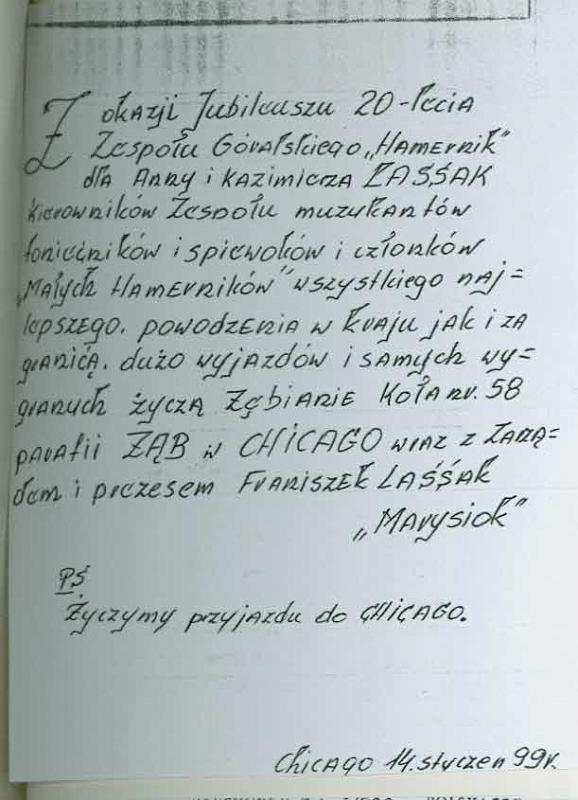 Z okazji Jubileuszu 20-lecia
Zespołu Góralskiego „Hamernik"
dla Anny i Kazimierza ŁASSAK
kierowników Zespołu muzykantów
tonieśników i śpiewoków i członków
„Małych Hamerników" wszystkiego naj=
lepszego. powodzenia w kraju jak i za
granicą. dużo wyjazdów i samych wy=
granych życzą Zębianie Koła nr. 58
parafii ZĄB w CHICAGO wraz z Zarzą=
dem i prezesem Franiszek LASSAK
„Marysiok"
PS
Życzymy przyjazdu do CHICAGO.
Chicago 14.styczen 99r.